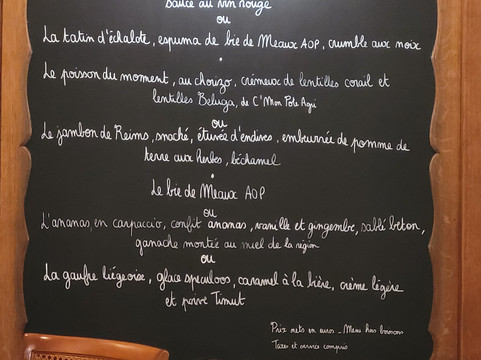 sauce au vin rouge
ou
La tatin d'échalote, espuma de bie de Meaux AOP, crumble aux noix
Le poisson du moment, au chorizo, crémeux de lentilles corail et
lentilles Beluga, de C'Mon Pôle Agri
ou
Le jambon de Reims, snaché, étuvée d'endives, embeurrée de pomme de
terre aux herbes, béchamel
Le bie de Meaux AOP
ou
L'ananas, en carpaccio, confit ananas, vanille et gingembre, sablé breton,
ganache montée au miel de la région
ou
La gaufre liégeoise, glace speculoos, caramel à la bière, crème légère
et poivre Timut
Prix nets en euros - Menu hors boissons
Taxes et service compris